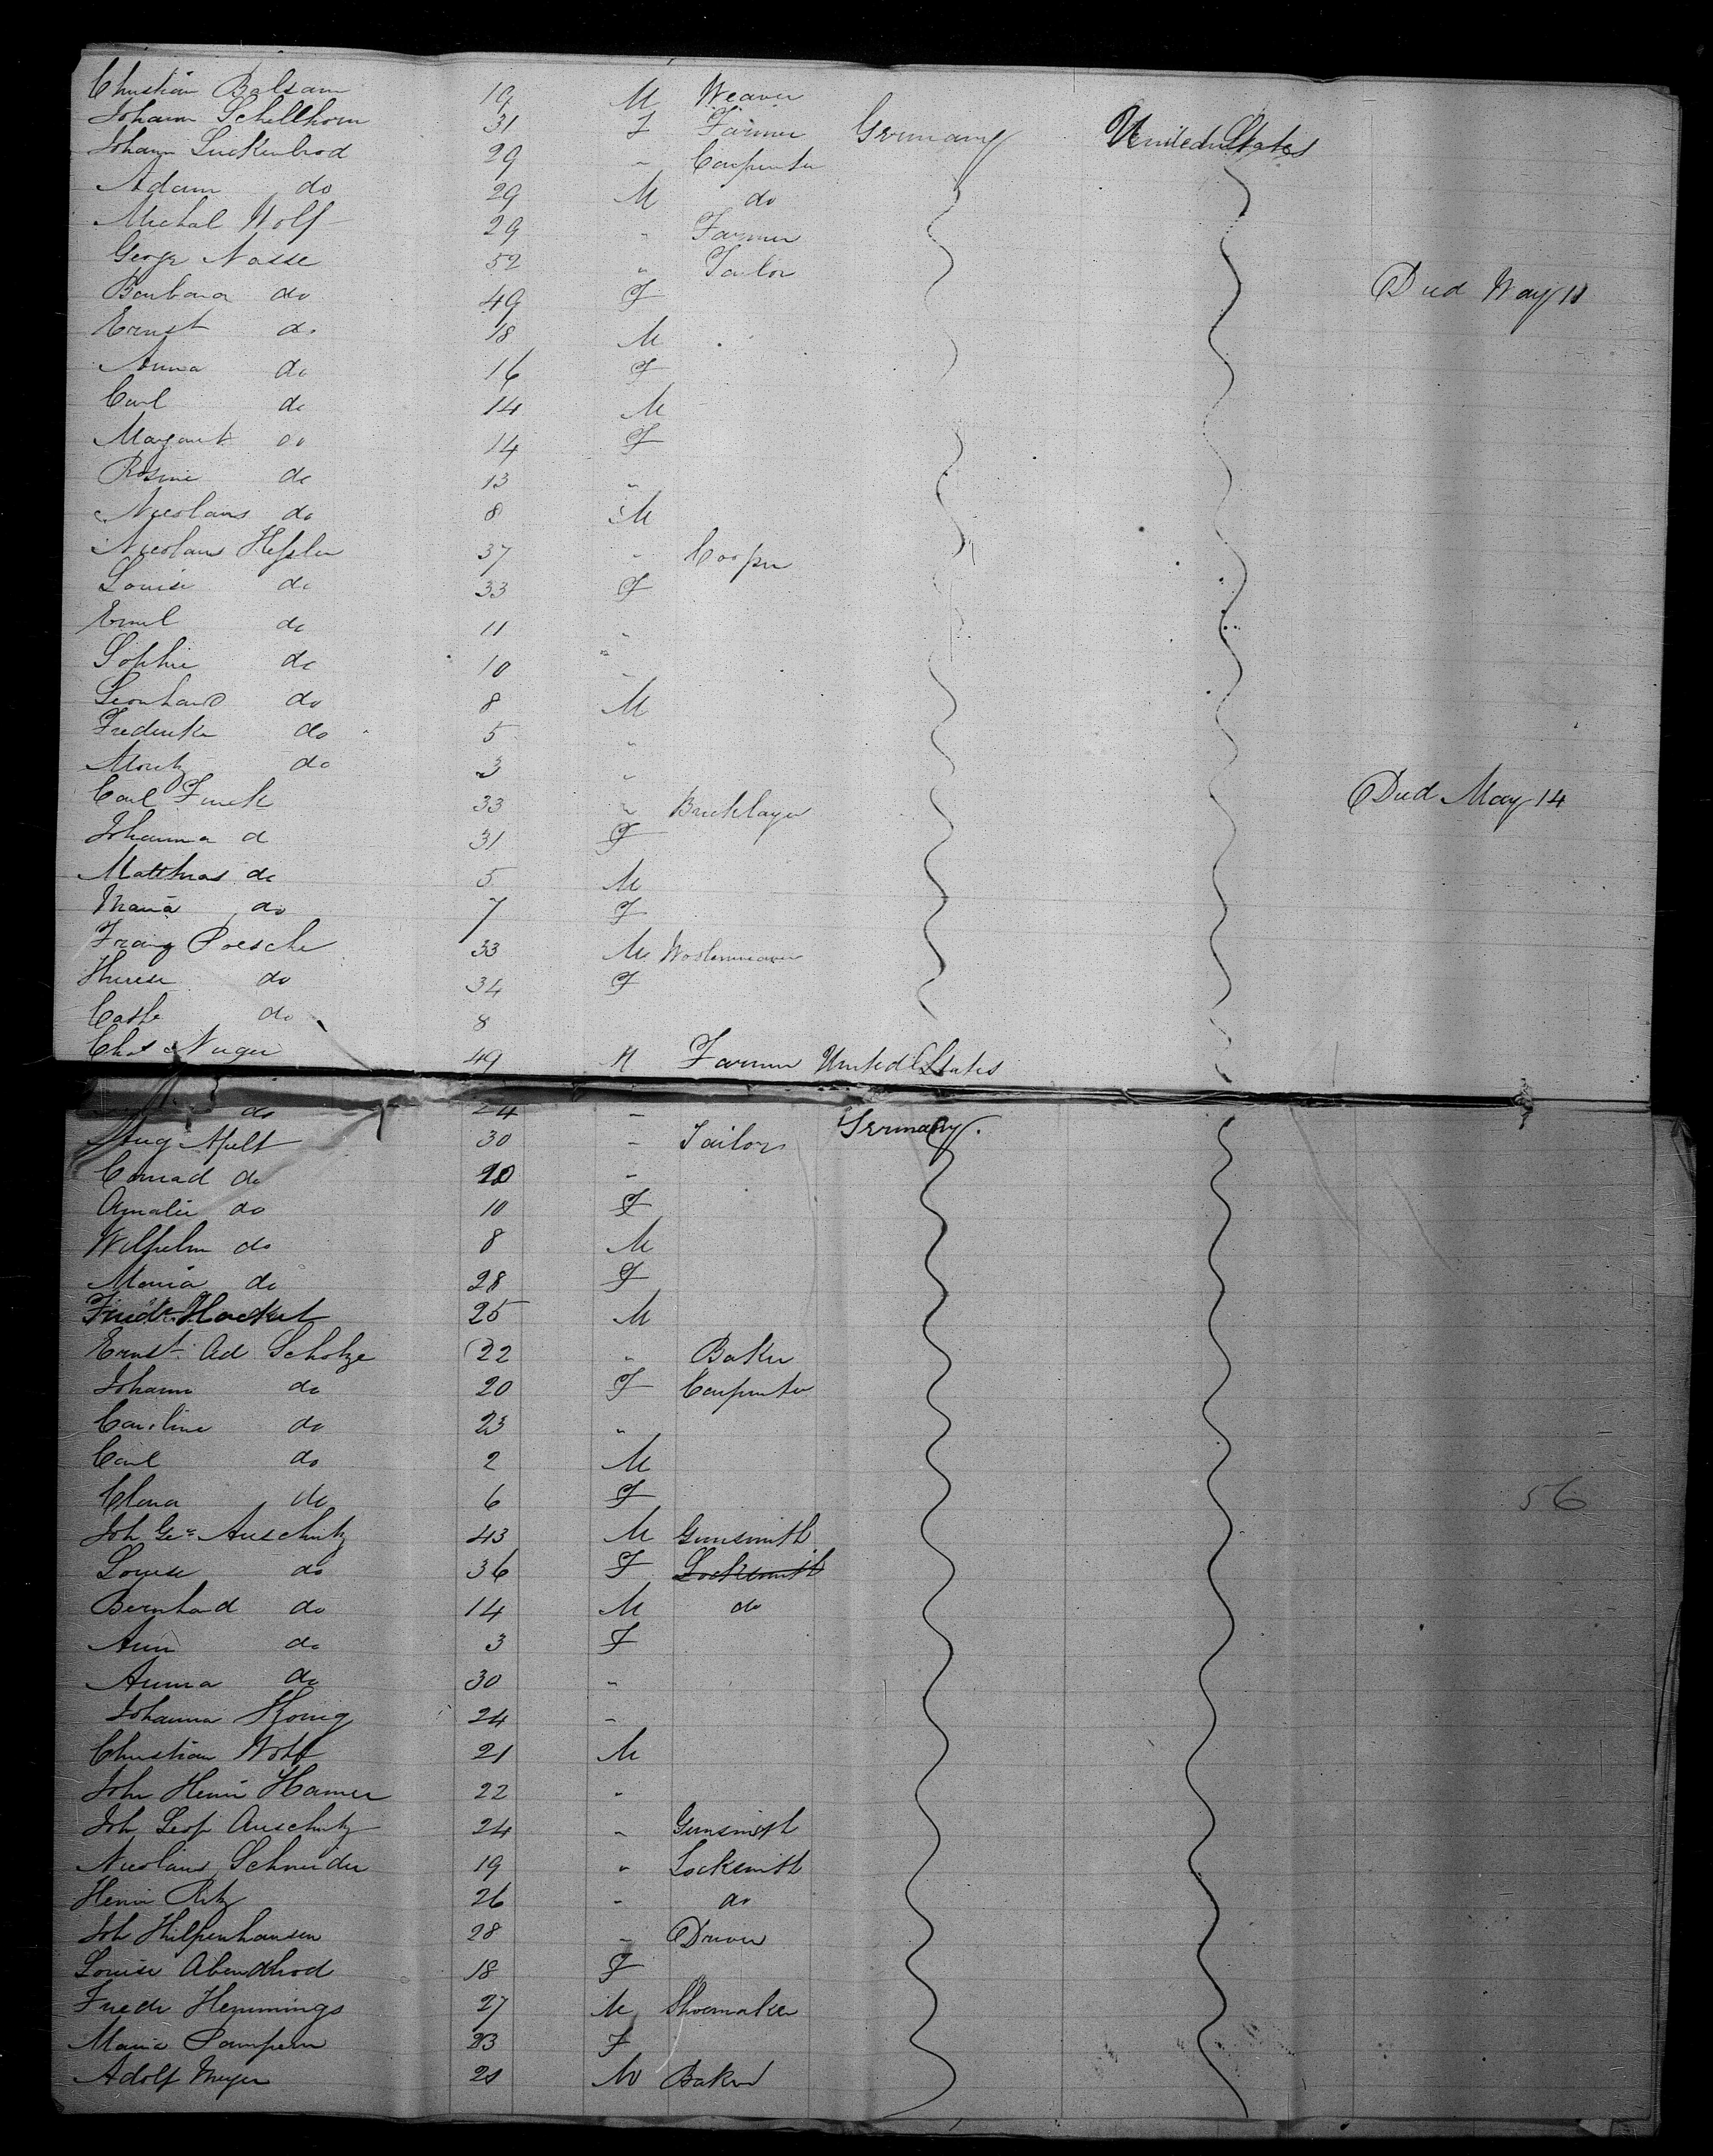 Christian Balsam 19 M Weaver
Johann Schellhorn 31 F Farmer Germany United States
Johann Luckenbrod 29 " Carpenter
Adam do 29 M do
Michal Wolf 29 " Farmer
George Nasse 52 " Tailor
Barbara do 49 F Died May 11
Ernst do 18 M
Anna do 16 F
Carl do 14 M
Margaret do 14 F
Rosine do 13 "
Nicolaus do 8 M
Nicolaus Heßler 37 " Cooper
Louise do 33 F
Emil do 11 "
Sophie do 10 "
Leonhard do 8 M
Frederike do 5 "
Moritz do 3 "
Carl Funck 33 " Bricklayer Died May 14
Johanna d 31 F
Matthias do 5 M
Maria do 7 F
Franz Poesche 33 M
Therese do 34 F
do 8
Chas 49 M Farmer United States
do 24 "
Aug Apelt 30 " Tailor Germany.
Conrad do 20 "
Amalie do 10 F
Wilhelm do 8 M
Maria do 28 F
Friedr. Hacket 25 M
Ernst Ad Schotze 22 " Baker
Johann do 20 F Carpenter
Caroline do 23 "
Carl do 2 M
Clara do 6 F 56
Joh Geo Anschutz 43 M Gunsmith
Louise do 36 F Locksmith
Bernhard do 14 M do
Ann do 3 F
Anna do 30 "
Johanna Konig 24 "
Christian Wolf 21 M
John Henri Hamer 22 "
Joh Leop Anschutz 24 " Gunsmith
Nicolaus Schneider 19 " Locksmith
Henri Ritz 26 " do
Joh Hilpenhausen 28 " Driver
Louise Abendhrod 18 F
Friedr Hemmings 27 M Shoemaker
Maria Pampern 23 F
Adolf Meyer 21 M Baker